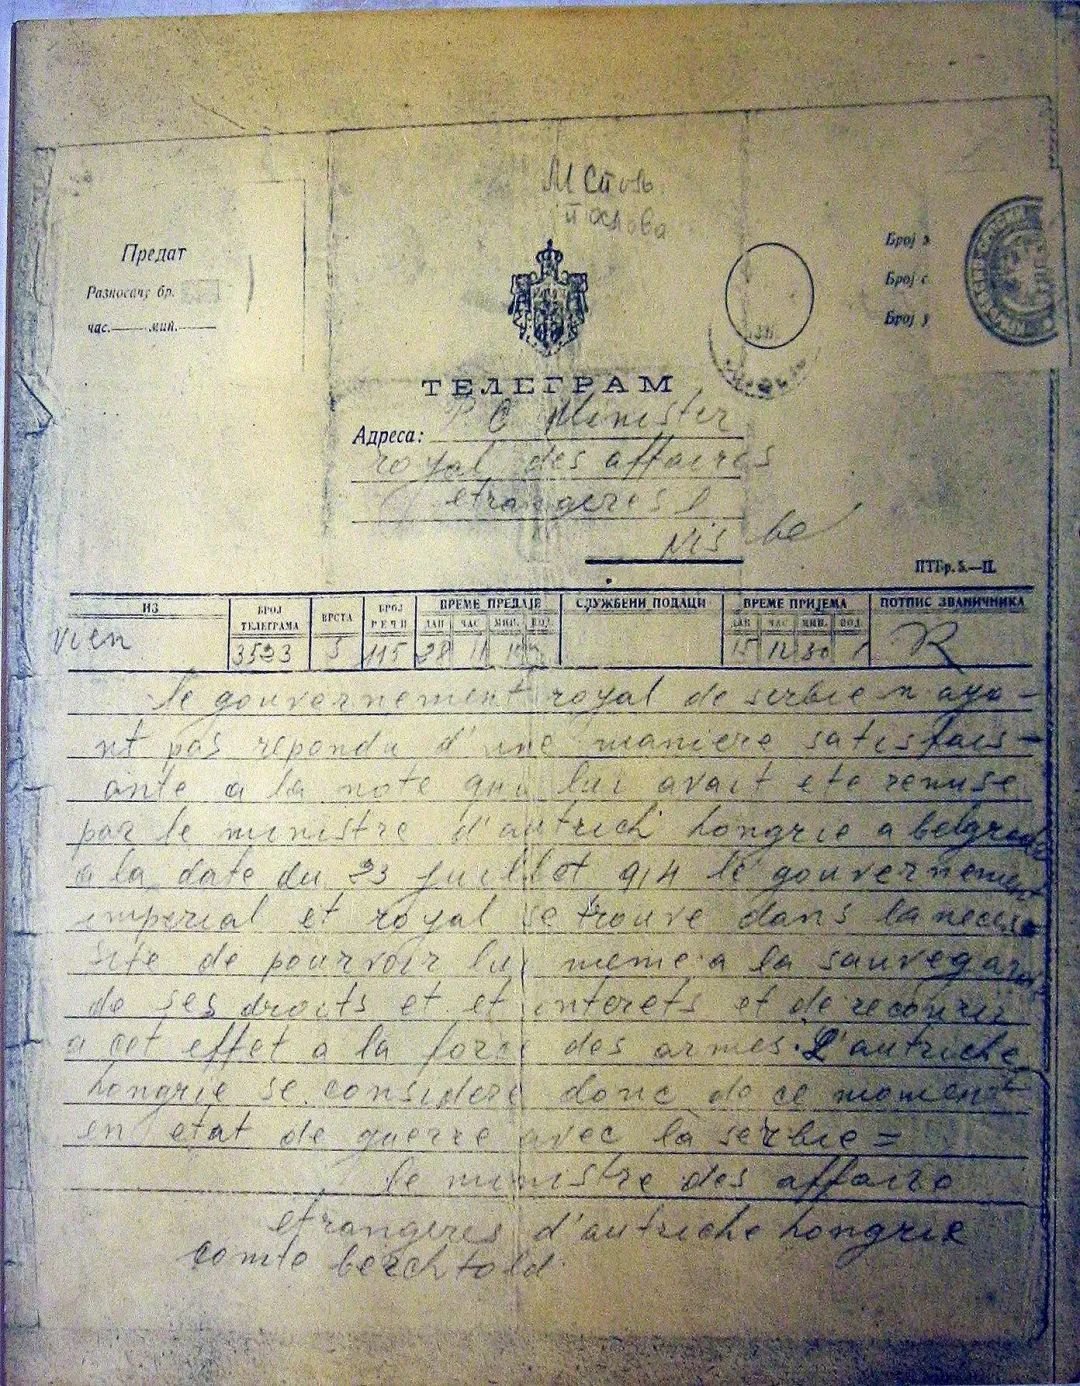 М Спољ
послова
Предат
Разносачу бр.
час. мин.
Број
Број с
Број
ТЕЛЕГРАМ
Адреса: Minister
royal des affaires
etrangeres
Nis
ПТТ бр. 5.—II.
ИЗ БРОЈ ТЕЛЕГРАМА ВРСТА БРОЈ РЕЧИ ВРЕМЕ ПРЕДАЈЕ СЛУЖБЕНИ ПОДАЦИ ВРЕМЕ ПРИЈЕМА ПОТПИС ЗВАНИЧНИКА
ДАН ЧАС МИН. ПОД. ДАН ЧАС МИН. ПОД.
Vien 3523 5 115 28 11 12 30
le gouvernement royal de serbie n ayo-
nt pas repondu d'une maniere satisfais-
ante a la note qui lui avait ete remise
par le ministre d'autrich hongrie a belgrade
a la date du 23 juillet 914 le gouvernement
imperial et royal se trouve dans la neces
site de pourvoir lui meme a la sauvegar
de ses droits et et interets et de recourir
a cet effet a la force des armes. L'autriche
hongrie se considere donc de ce moment
en etat de guerre avec la serbie =
le ministre des affaire
etrangeres d'autriche hongrie
comte berchtold